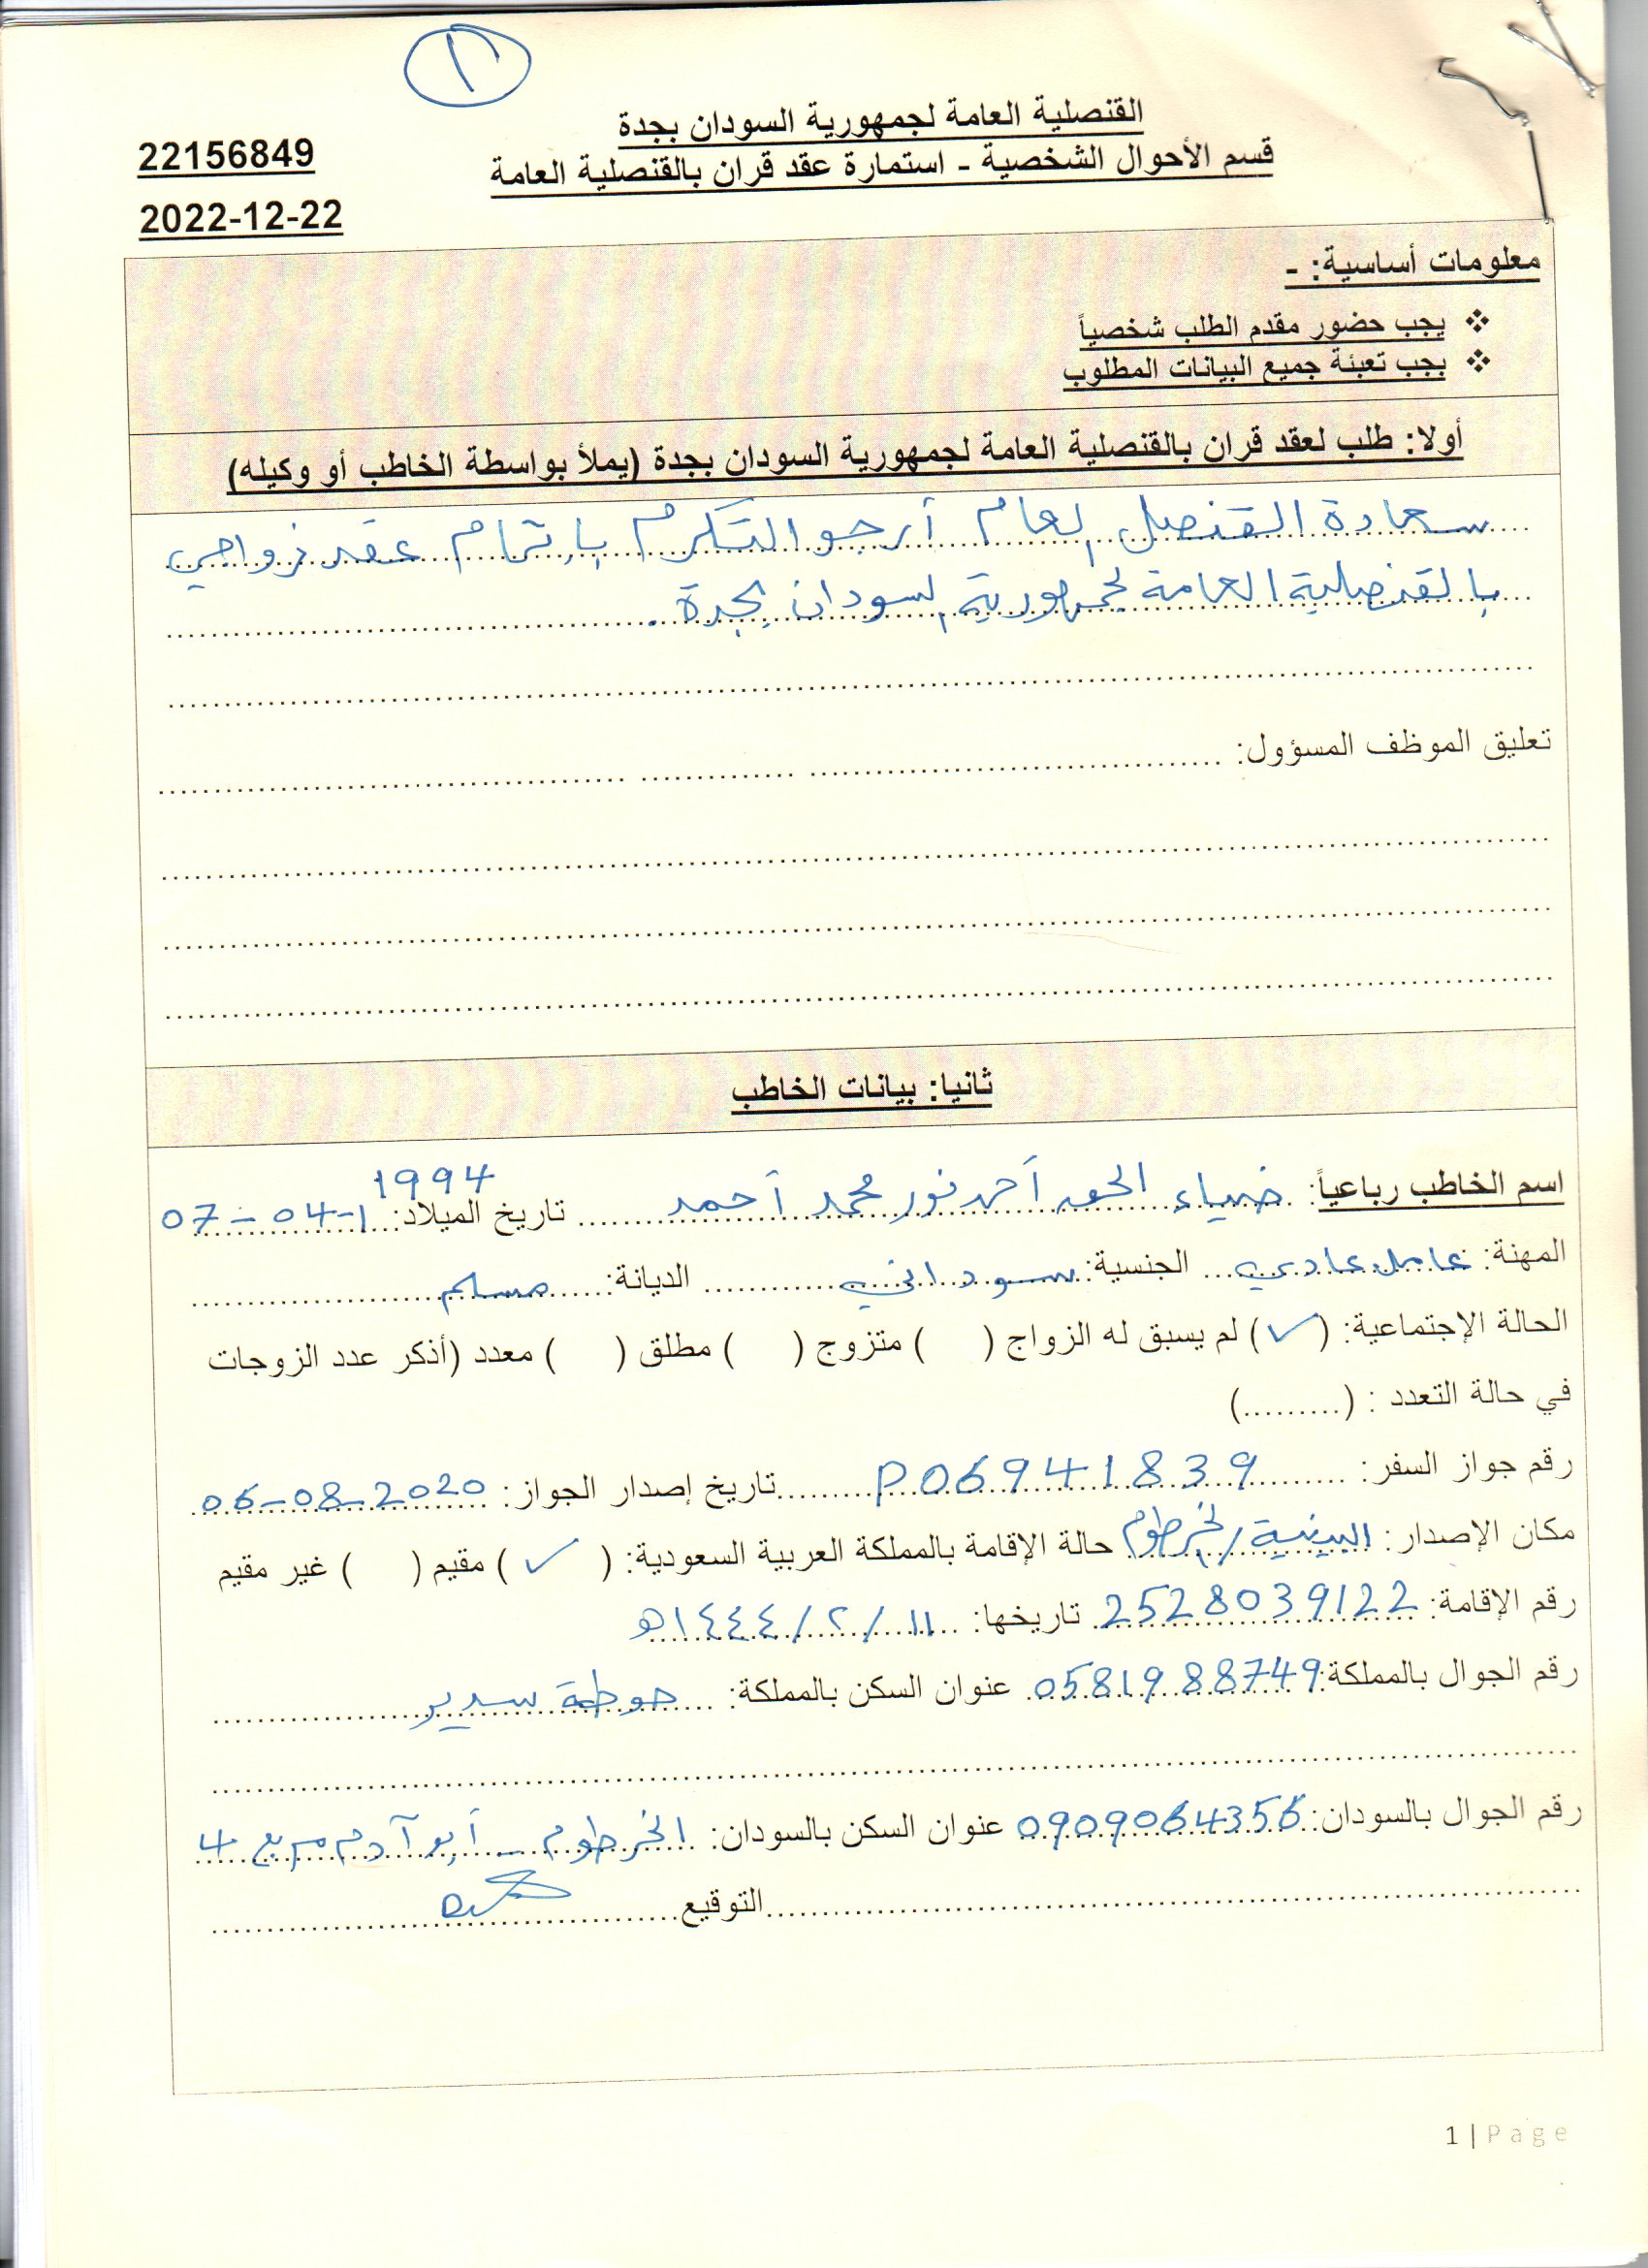 ١
القنصلية العامة لجمهورية السودان بجدة
قسم الأحوال الشخصية - استمارة عقد قران بالقنصلية العامة
22156849
2022-12-22
معلومات أساسية: -
❖ يجب حضور مقدم الطلب شخصياً
❖ يجب تعبئة جميع البيانات المطلوب
أولا: طلب لعقد قران بالقنصلية العامة لجمهورية السودان بجدة (يملأ بواسطة الخاطب أو وكيله)
سعادة القنصل العام أرجو التكرم بإتمام عقد زواجي
بالقنصلية العامة لجمهورية السودان بجدة.
تعليق الموظف المسؤول:
ثانيا: بيانات الخاطب
اسم الخاطب رباعياً: ضياء الحق أحمد نور محمد أحمد تاريخ الميلاد: 07-04-1994
المهنة: عامل عادي الجنسية: سوداني الديانة: مسلم
الحالة الإجتماعية: (✓) لم يسبق له الزواج ( ) متزوج ( ) مطلق ( ) معدد (أذكر عدد الزوجات
في حالة التعدد : (.........)
رقم جواز السفر: P06941839 تاريخ إصدار الجواز: 06-08-2020
مكان الإصدار: / الخرطوم حالة الإقامة بالمملكة العربية السعودية: ( ✓ ) مقيم ( ) غير مقيم
رقم الإقامة: 2528039122 تاريخها: ١١/٢/١٤٤٤هـ
رقم الجوال بالمملكة: 0581988749 عنوان السكن بالمملكة: حوطة سدير
رقم الجوال بالسودان: 0909064356 عنوان السكن بالسودان: الخرطوم - أبو آدم مربع 4
التوقيع
1 | Page